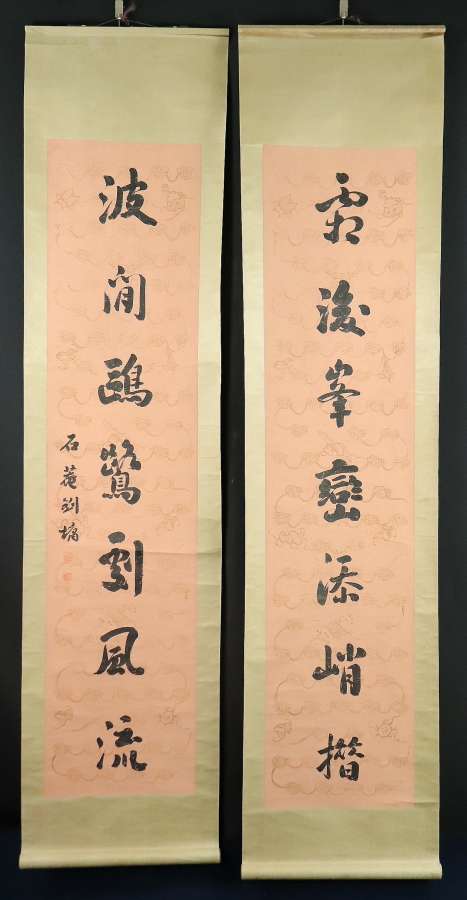 霜後峯巒添峭
波間鷗鷺劇風流
石菴劉墉